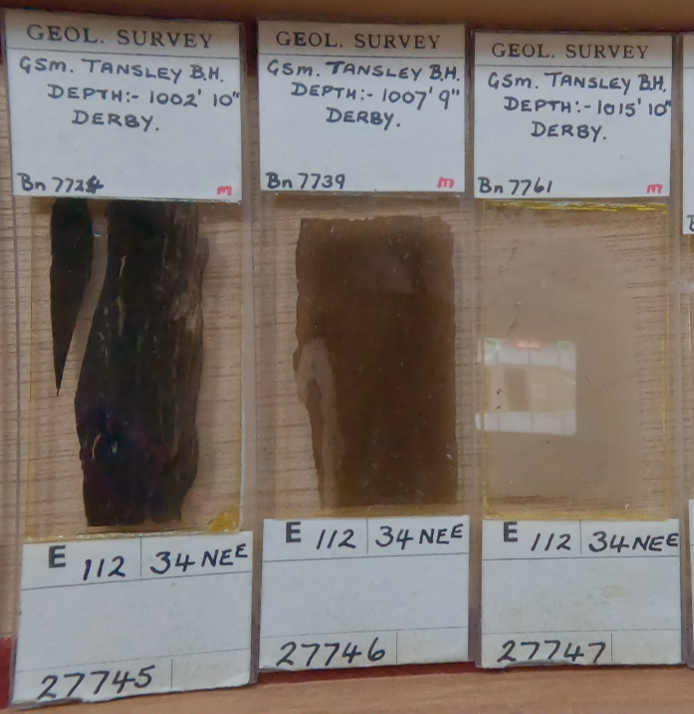 GEOL. SURVEY
GSM. TANSLEY B.H.
DEPTH:- 1002' 10"
DERBY.
m
E 112 34 NE E
27745
GEOL. SURVEY
GSM. TANSLEY B.H.
DEPTH:- 1007' 9"
DERBY.
Bn 7739 m
E 112 34 NE E
27746
GEOL. SURVEY
GSM. TANSLEY B.H.
DEPTH:- 1015' 10"
DERBY.
Bn 7761 m
E 112 34 NE E
27747